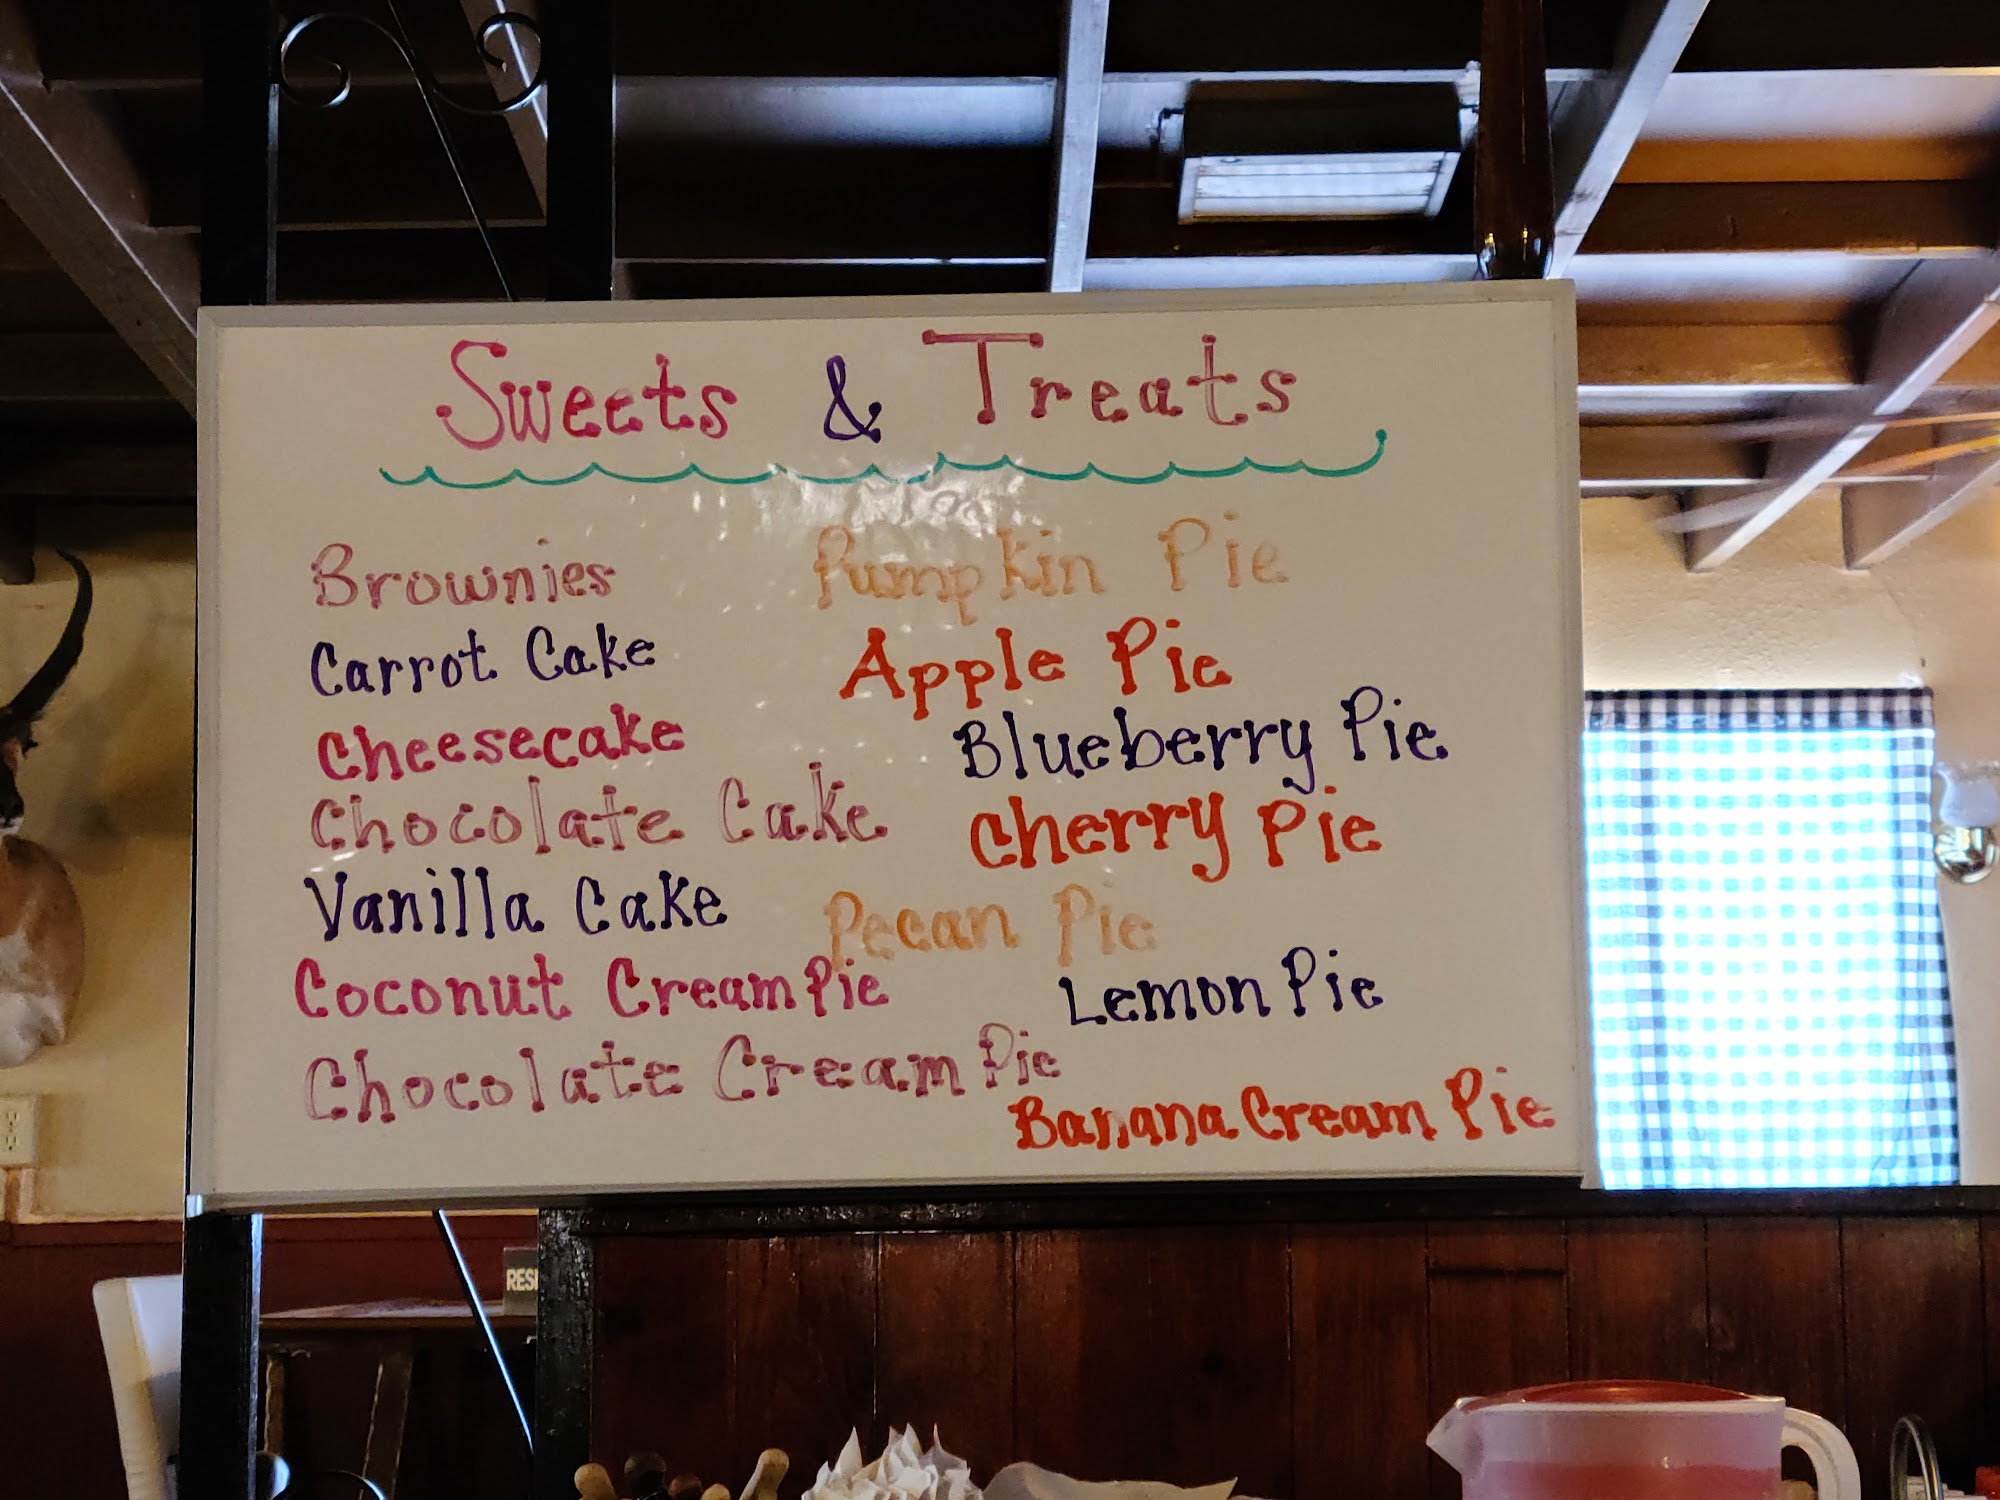 Sweets & Treats
Brownies
Carrot Cake
Cheesecake
Chocolate Cake
Vanilla Cake
Coconut Cream Pie
Chocolate Cream Pie
Pumpkin Pie
Apple Pie
Blueberry Pie
Cherry Pie
Pecan Pie
Lemon Pie
Banana Cream Pie